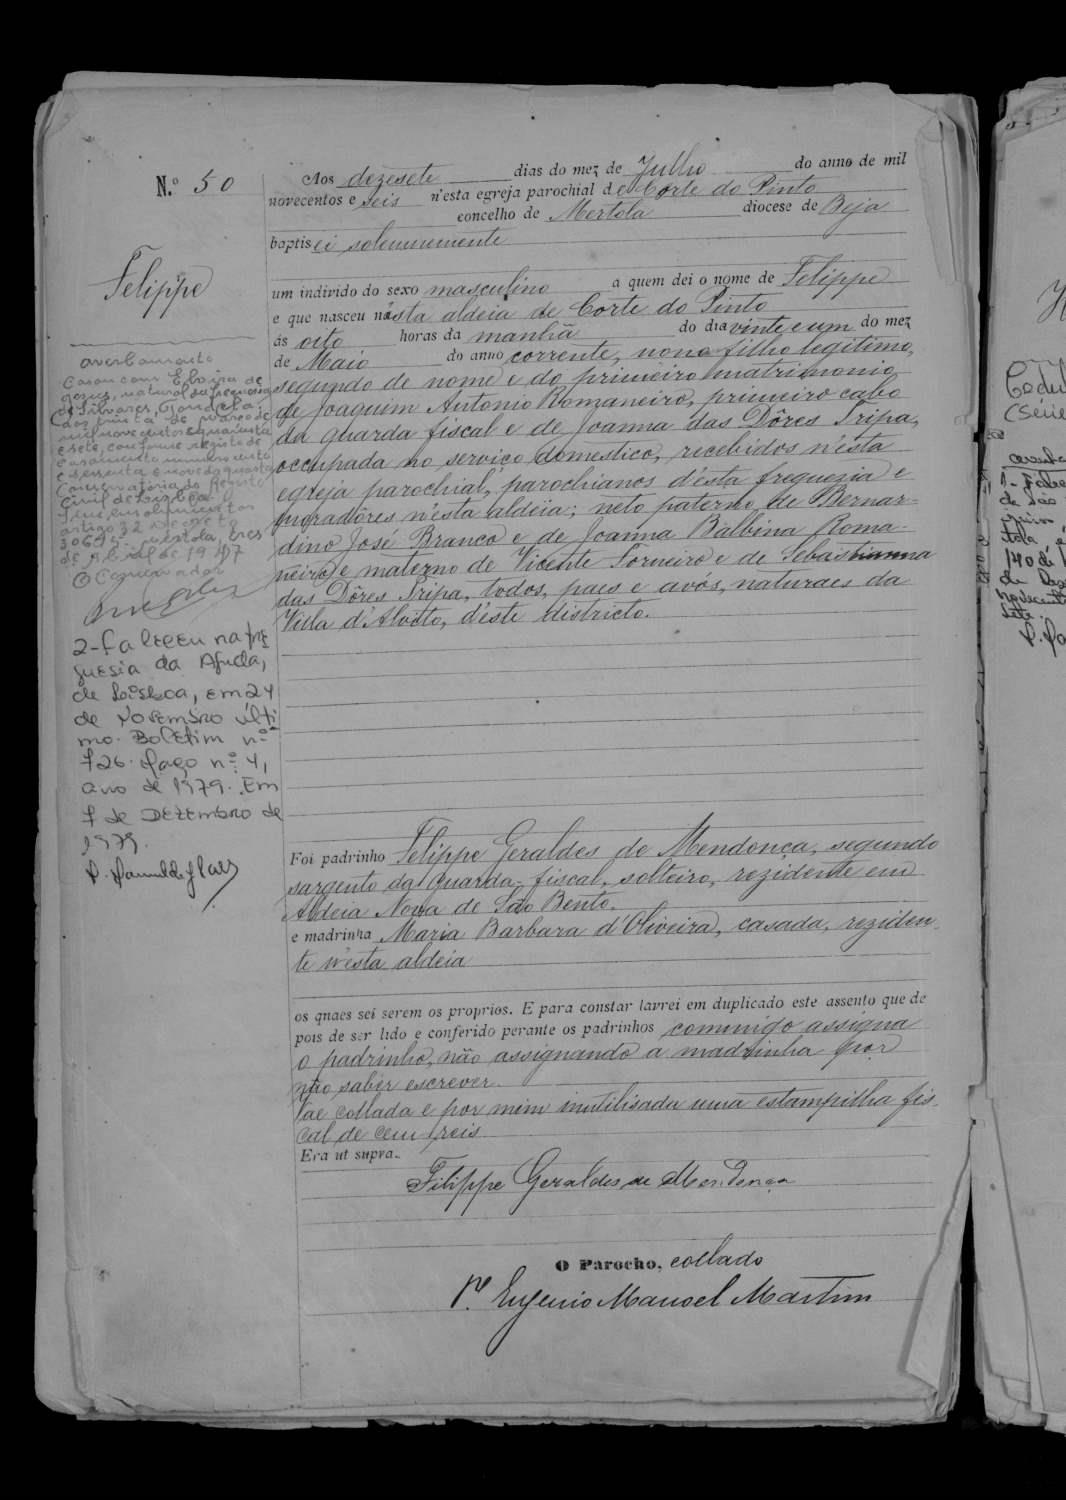 N.º 50
Felippe
Aos dezesete dias do mez de Julho do anno de mil
novecentos e seis n'esta egreja parochial de Corte do Pinto
concelho de Mertola diocese de Beja
baptisei solemnemente
um individo do sexo masculino a quem dei o nome de Felippe
e que nasceu nésta aldeia de Corte do Pinto
ás oito horas da manhã do dia vinte e um do mez
de Maio do anno corrente, nono filho legitimo,
segundo de nome e do primeiro matrimonio
de Joaquim Antonio Romaneiro, primeiro cabo
da guarda fiscal e de Joanna das Dôres Tripa,
occupada no serviço domestico, recebidos n'ésta
egreja parochial, parochianos d'ésta freguezia e
moradôres n'ésta aldeia; neto paterno de Bernar-
dino José Branco e de Joanna Balbina Roma-
neiro e materno de Vicente Torneiro e de Sebastianna
das Dôres Tripa, todos, paes e avós, naturaes da
Villa d'Alvito, d'éste districto.
Foi padrinho Felippe Geraldes de Mendonça, segundo
sargento da guarda-fiscal, solteiro, rezidente em
Aldeia Nova de São Bento,
e madrinha Maria Barbara d'Oliveira, casada, reziden-
te n'ésta aldeia
os quaes sei serem os proprios. E para constar lavrei em duplicado este assento que de
pois de ser lido e conferido perante os padrinhos commigo assigna
o padrinho, não assignando a madrinha por
não saber escrever.
Vae collada e por mim inutilisada uma estampilha fis-
cal de cem reis
Era ut supra.
Felippe Geraldes de Mendonça
O Parocho, collado
P.e Eugenio Manoel Martins
averbamento
Casou com Elvira de
natural da freguesia
de Silvares, Tondela,
aos trinta de março de
mil novecentos e quarenta
e sete, conforme registo de
casamento numero cento
e sessenta e nove da quarta
Conservatória do Registo
Civil de Lisboa.
artigo 32 Decreto
Mertola, tres
de Abril de 1947
O Conservador
2-Faleceu na fre
guesia da Ajuda,
de Lisboa, em 24
de Novembro últi
mo. Boletim nº
726. Maço nº 4,
ano de 1979. Em
7 de Dezembro de
1979.